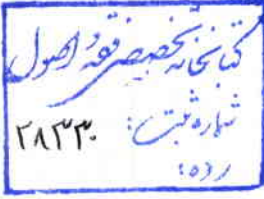 کتابخانه تخصصی فقه و اصول
شماره ثبت: ۲۸۳۳۰
رده: